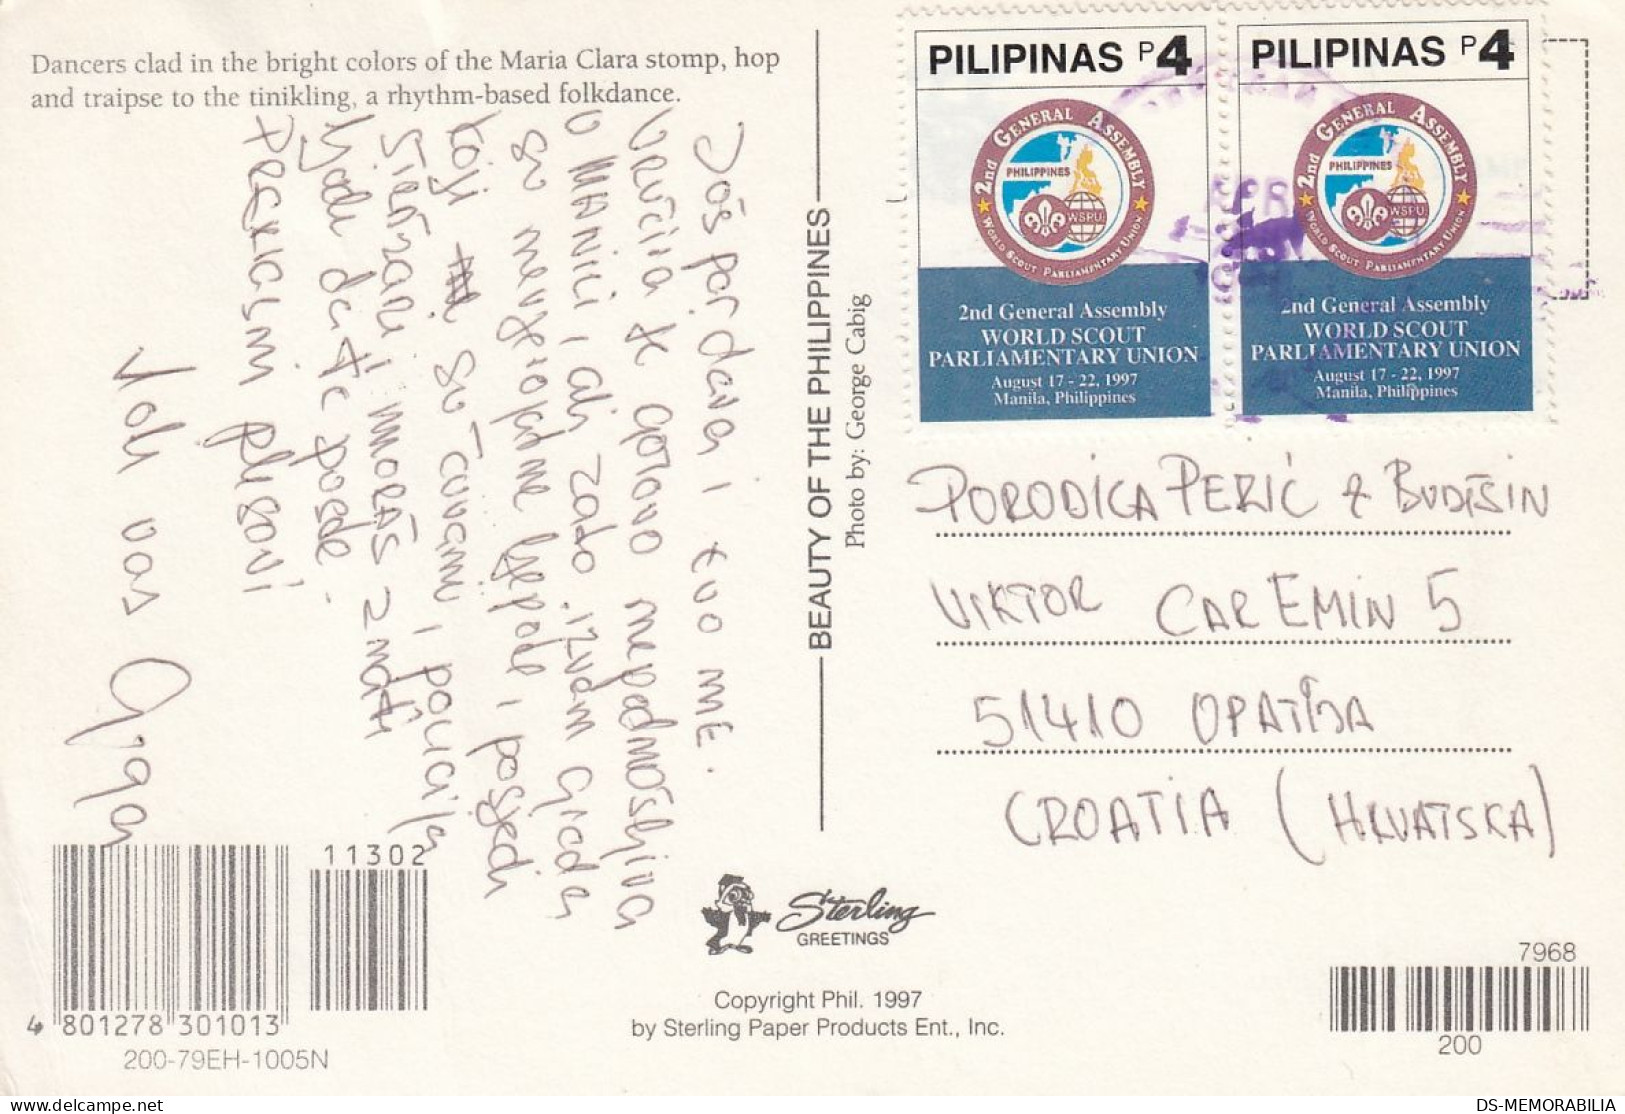 Dancers clad in the bright colors of the Maria Clara stomp, hop
and traipse to the tinikling, a rhythm-based folkdance.
Još par dana i evo me.
Vrućina je gotovo nepodnošljiva
u MANILI, ali zato izvan grada
su nevjerojatne ljepote i posjedi
koji su čuvani i policija
i moraš znati
ljude da te
pleSovi
Voli vas Giga
BEAUTY OF THE PHILIPPINES
Photo by: George Cabig
PILIPINAS P4
2nd GENERAL ASSEMBLY
PHILIPPINES
WSPU
WORLD SCOUT PARLIAMENTARY UNION
2nd General Assembly
WORLD SCOUT
PARLIAMENTARY UNION
August 17 - 22, 1997
Manila, Philippines
PILIPINAS P4
2nd GENERAL ASSEMBLY
PHILIPPINES
WSPU
WORLD SCOUT PARLIAMENTARY UNION
2nd General Assembly
WORLD SCOUT
PARLIAMENTARY UNION
August 17 - 22, 1997
Manila, Philippines
PORODICA PERIĆ & BUDIŠIN
VIKTOR CAR EMIN 5
51410 OPATIJA
CROATIA (HRVATSKA)
11302
4 801278 301013
200-79EH-1005N
Sterling
GREETINGS
Copyright Phil. 1997
by Sterling Paper Products Ent., Inc.
7968
200
DS-MEMORABILIA